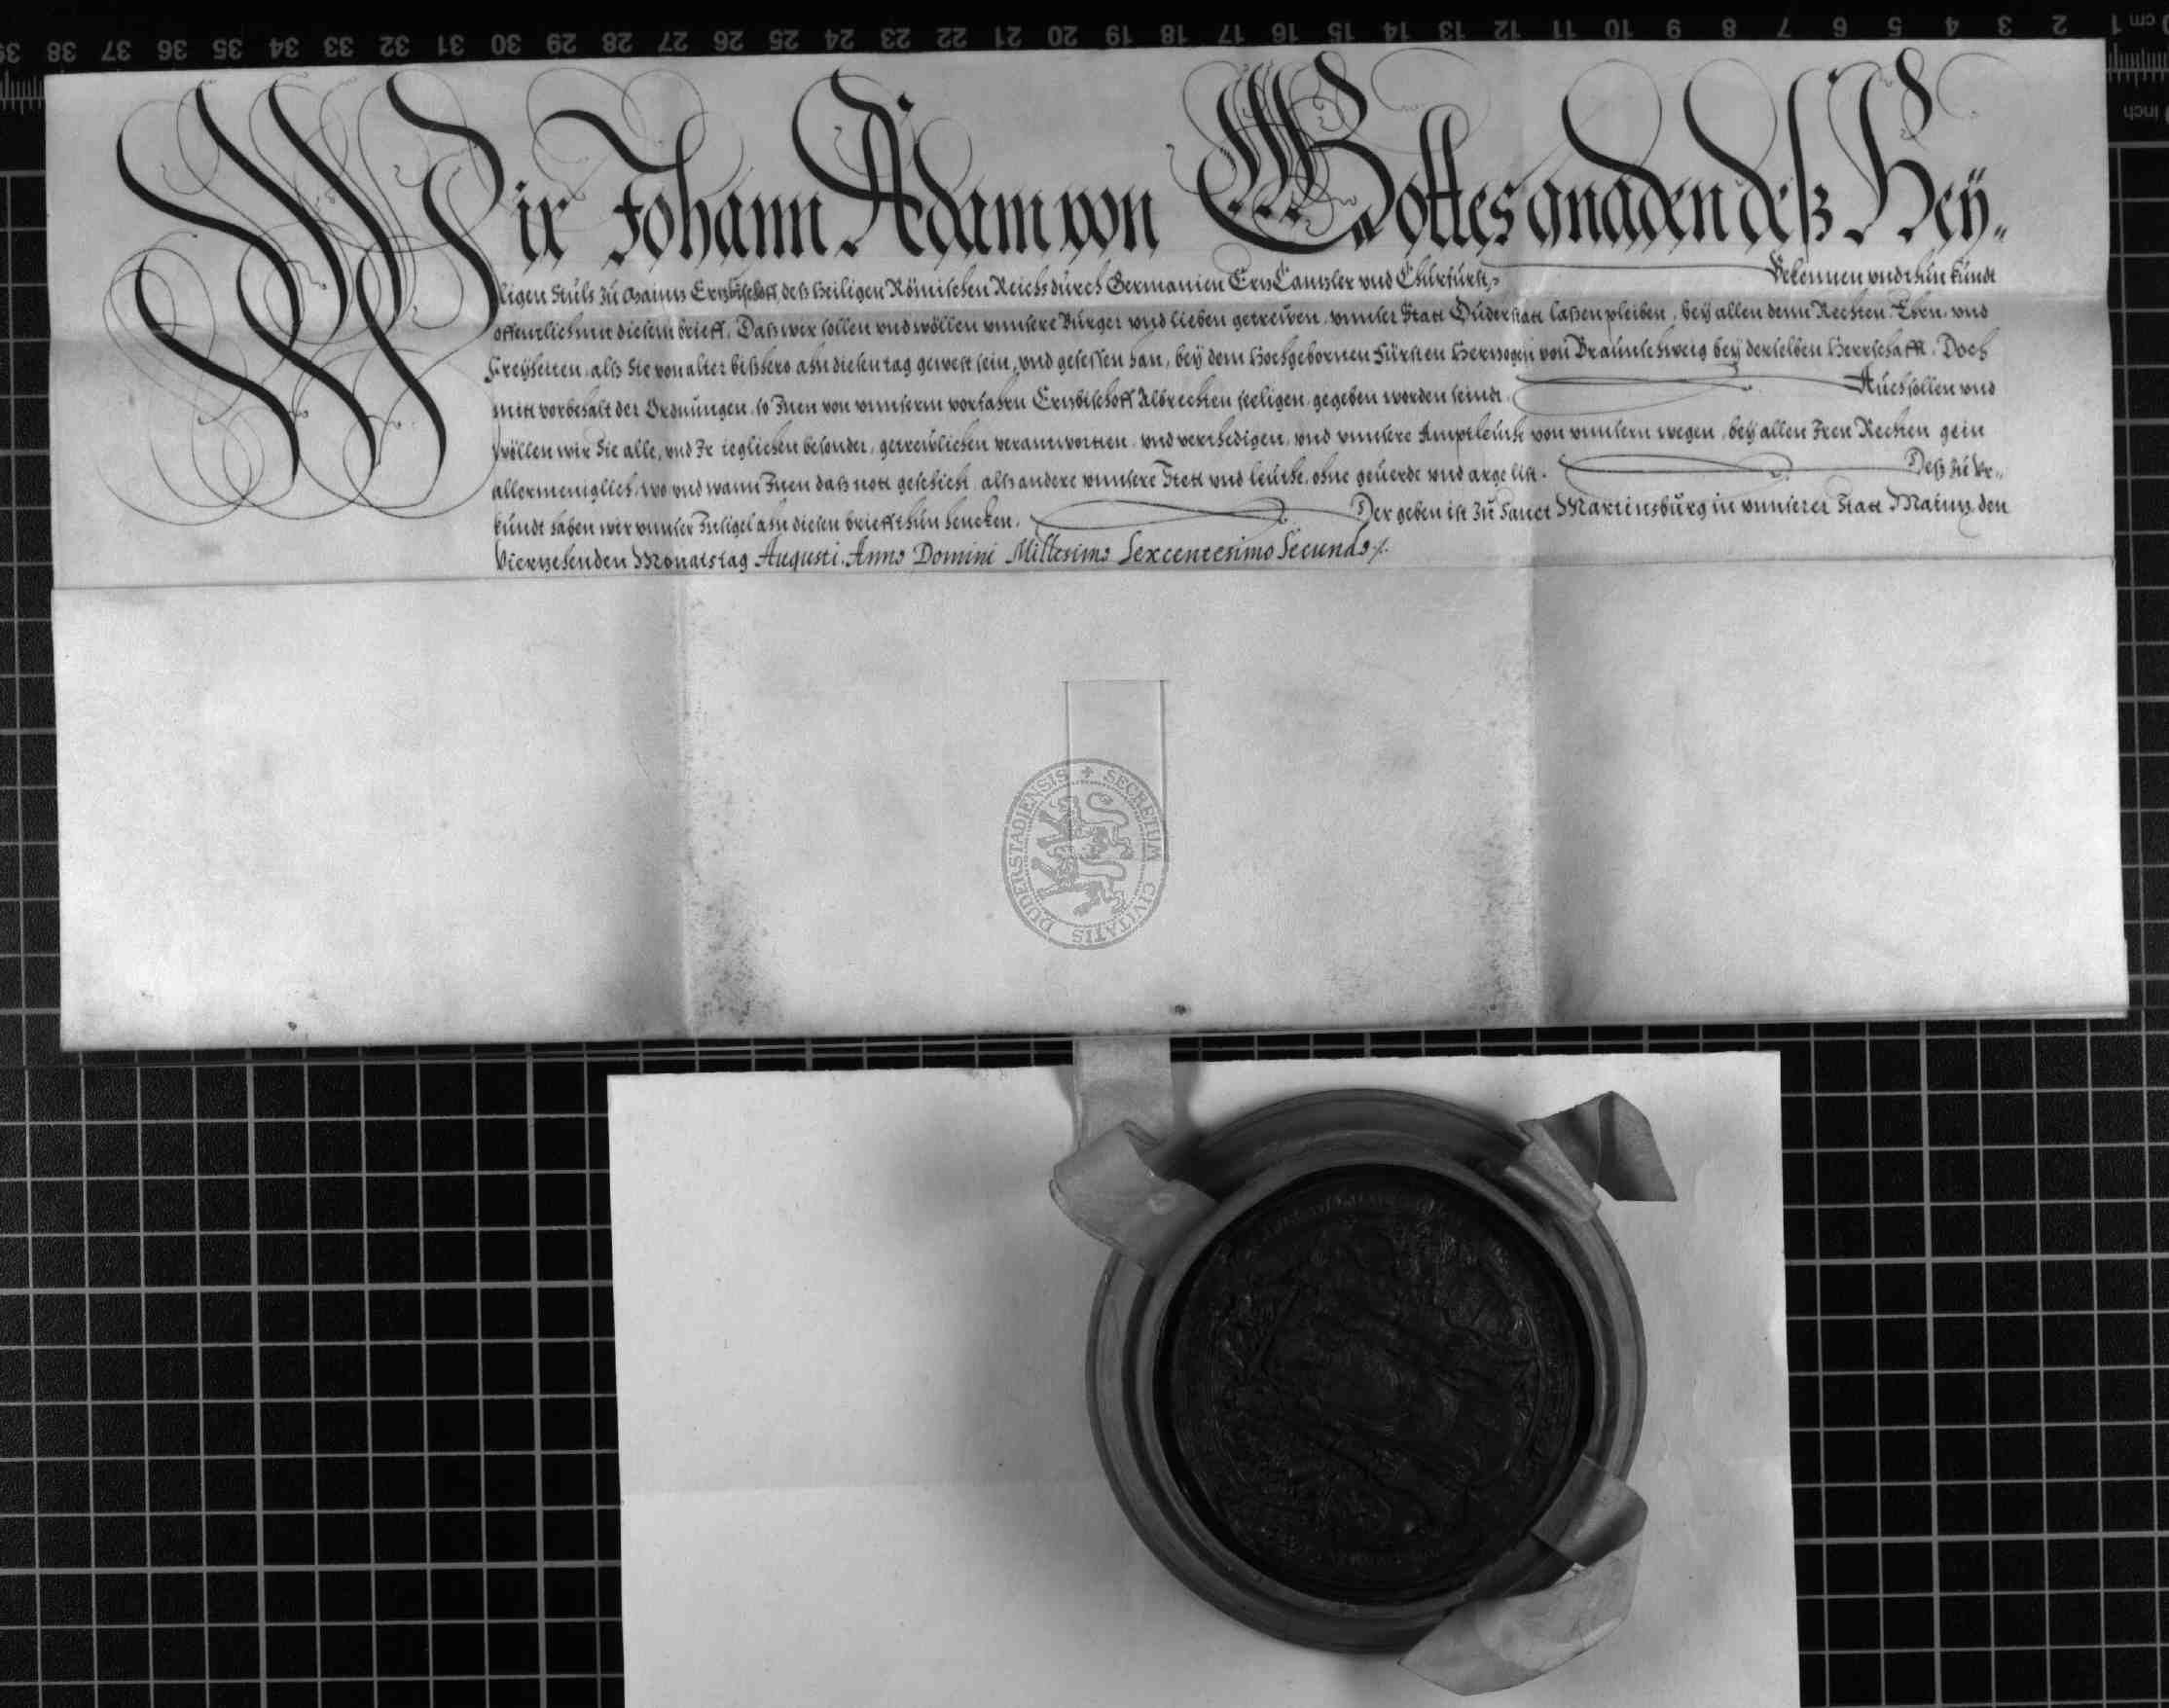 Wir Johann Adam von Gottes gnaden deß Heÿ„
ligen Stuls zu Maintz Ertzbischoff, deß heiligen Römischen Reichs durch Germanien Ertz Cantzler vnd Churfurst, Bekennen vnd thun kundt
offentlich mit diesem brieff, Daß wir sollen vnd wöllen vnnsere Burger vnd lieben getrewen, vnnser Statt Duderstatt laßen pleiben, beÿ allen denn Rechten, Ehrn, vnd
Freÿheiten, alß Sie von alter bißhero ahn diesen tag gewest sein, vnd gesessen han, beÿ dem Hochgebornen Fürsten Hertzogen von Braunschweig beÿ derselben Herrschafft, Doch
mitt vorbehalt der Ordnungen, so Inen von vnnserm vorfahrn Ertzbischoff Albrechten seeligen, gegeben worden seindt. Auch sollen vnd
wöllen wir Sie alle, vnd Ir ieglichen besonder, getrewlichen verantwortten, vnd verthedigen, vnd vnnsere Amptleuthe von vnnsern wegen, beÿ allen Iren Rechten gein
allermeniglich, wo vnd wann Inen daß nott geschicht, alß andere vnnsere Stett vnd leuthe, ohne geuerde vnd arge list. Deß zu Vr„
kundt haben wir vnnser Insigel ahn diesen brieff thun hencken. Der geben ist zu Sanct Martinsburg in vnnserer Statt Maintz, den
Viertzehenden Monatstag Augusti. Anno Domini Millesimo Sexcentesimo Secundo
SECRETUM CIVITATIS DUDERSTADIENSIS
39 38 37 36 35 34 33 32 31 30 29 28 27 26 25 24 23 22 21 20 19 18 17 16 15 14 13 12 11 10 9 8 7 6 5 4 3 2 1 cm
inch